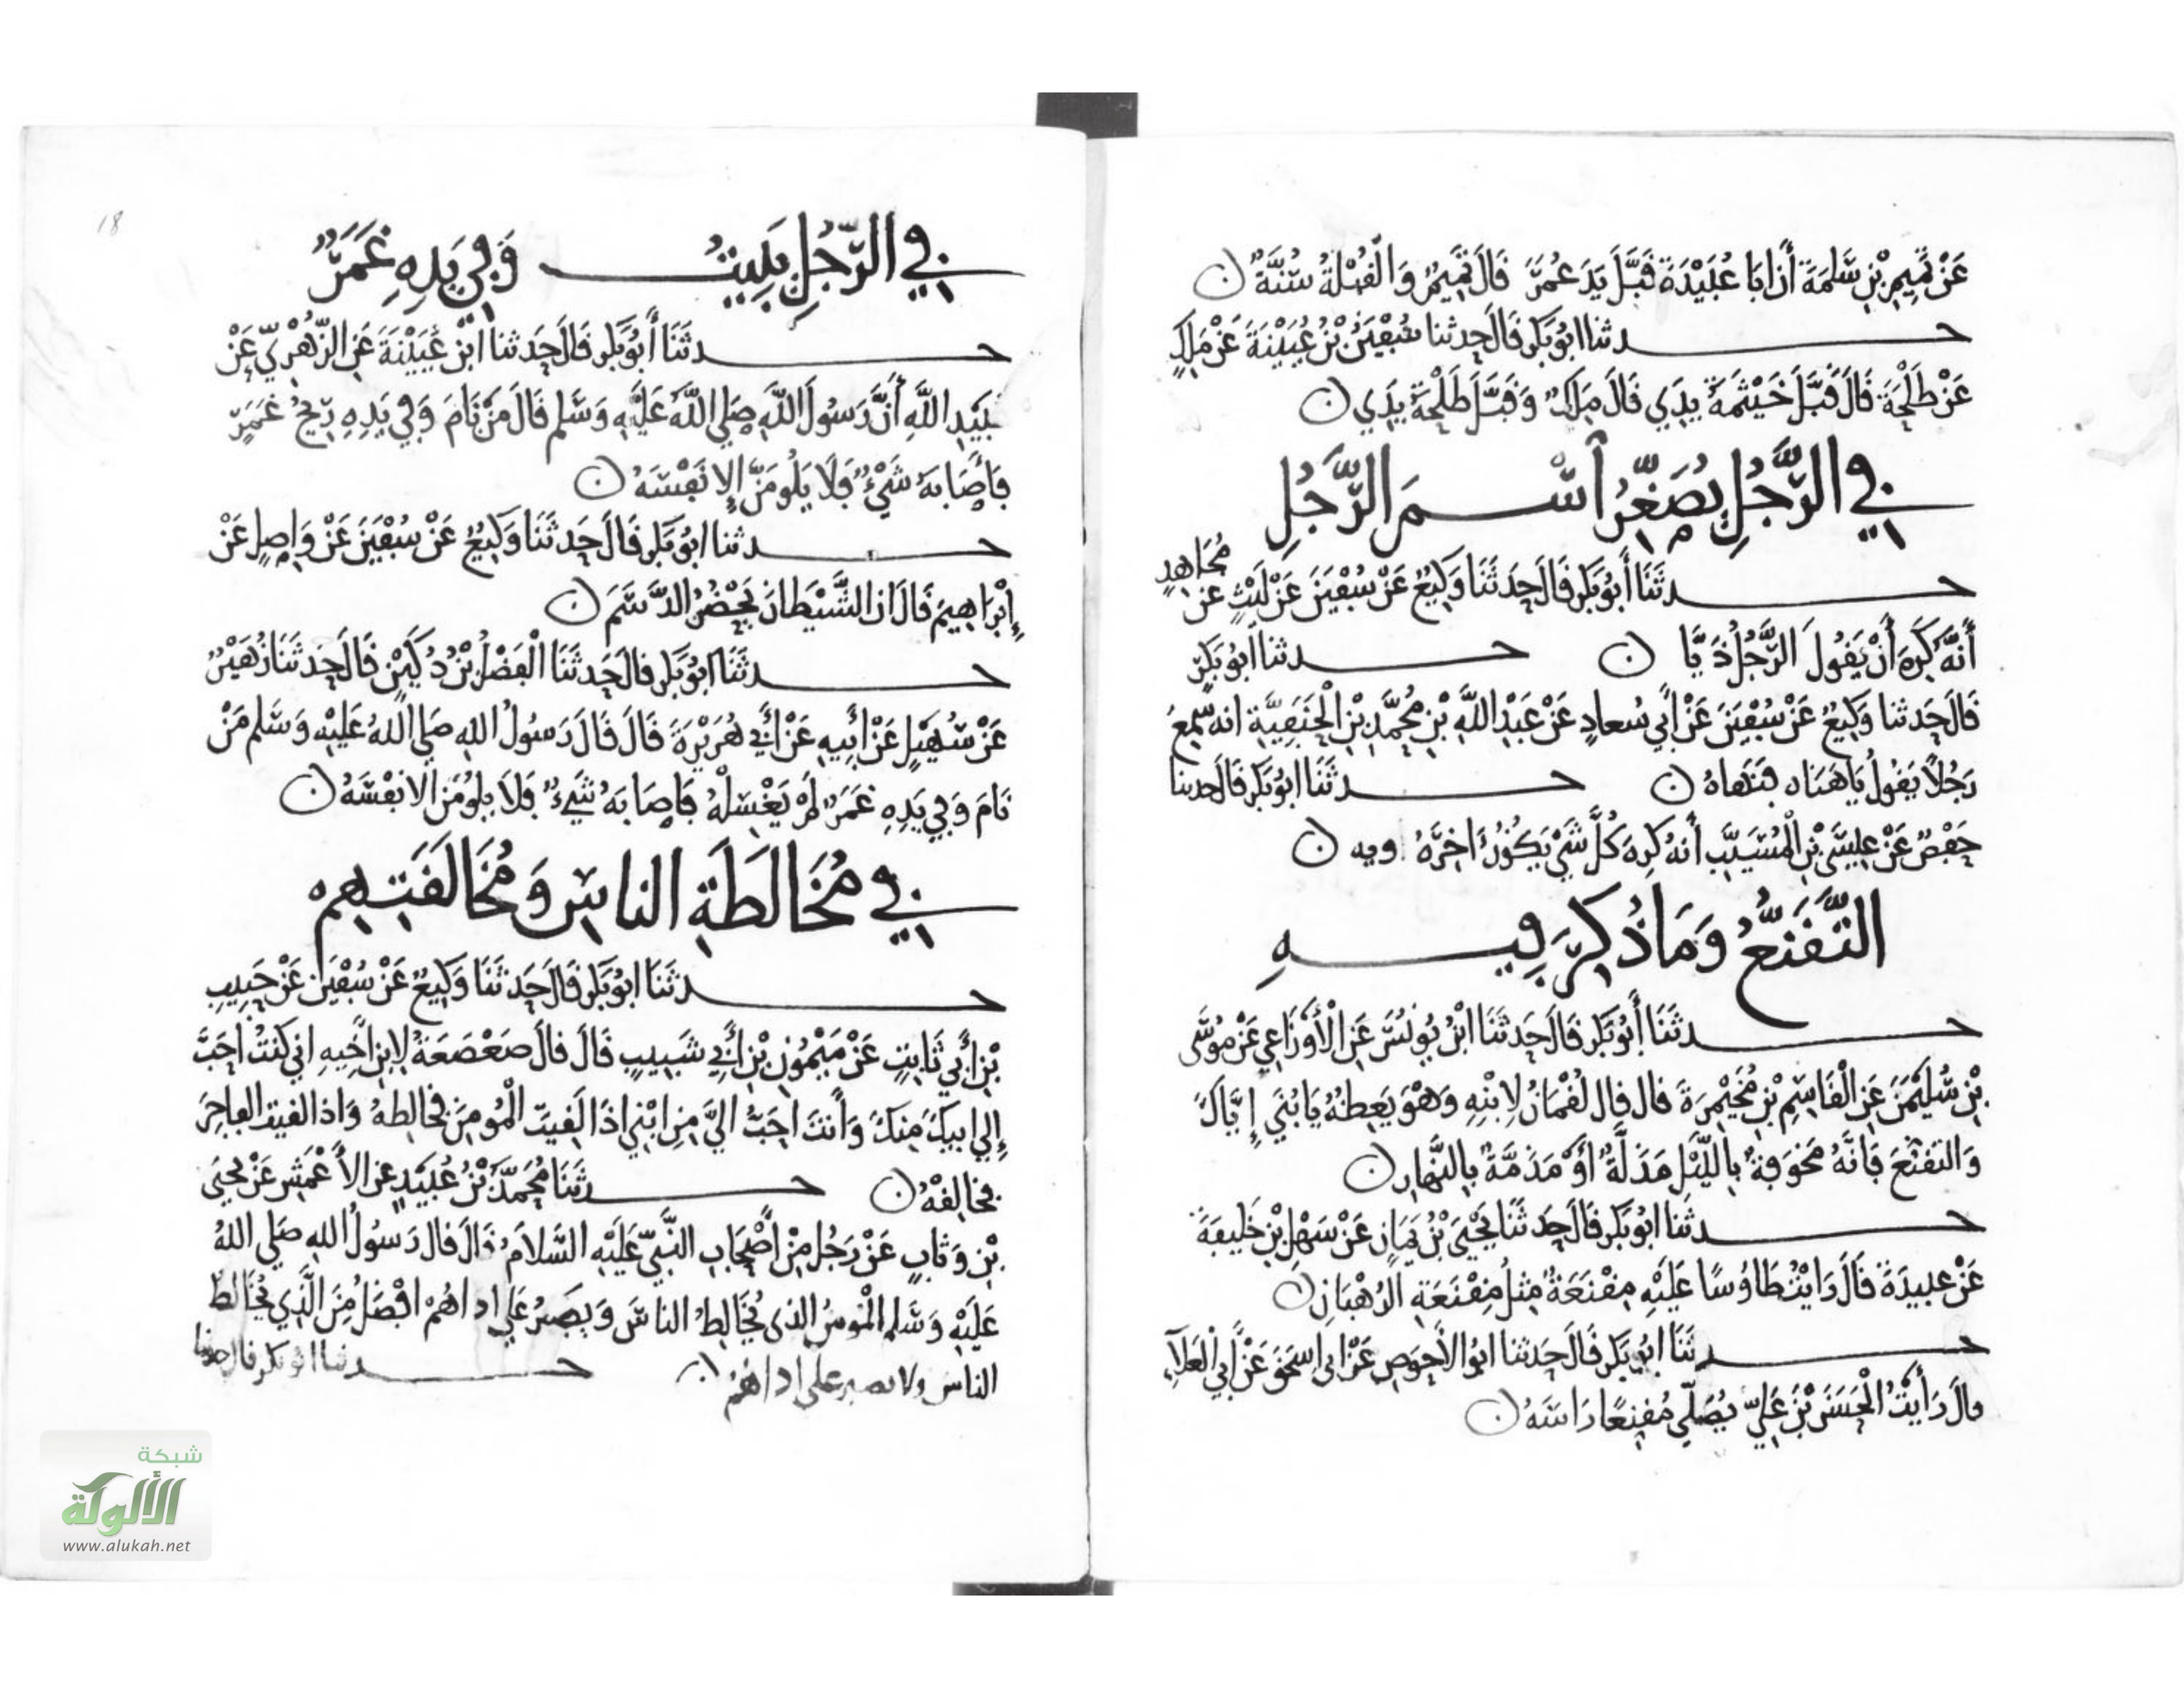 عَنْ تَمِيمِ بْنِ سَلَمَةَ أَنَّ ابَا عُبَيْدَةَ قَبَّلَ يَدَ عُمَرَ قَالَ تَمِيمٌ وَالْقُبْلَةُ سُنَّةٌ
حدثنا ابُو بَكرٍ قَالَ حَدثنا سُفْيَنُ بْنُ عُيَيْنَةَ عَنْ مَلِكٍ
عَنْ طَلْحَةَ قَالَ قَبَّلَ خَيْثَمَةُ يَدِي قَالَ مَلِكٌ وَقَبَّلَ طَلْحَةُ يَدِي
فِي الرَّجُلِ يُصَغِّرُ اسْمَ الرَّجُلِ
حدثَنَا أَبُو بَكرٍ قَالَ حَدثَنَا وَكِيعٌ عَنْ سُفْيَنَ عَنْ لَيْثٍ عَنْ مُجَاهِدٍ
أَنَّهُ كَرِهَ أَنْ يَقُولَ الرَّجُلُ ذَيَّا حدثنا ابُو بَكرٍ
قَالَ حَدثنا وَكِيعٌ عَنْ سُفْيَنَ عَنْ أَبِي سُعادٍ عَنْ عَبْدِ اللَّهِ بْنِ مُحَمَّدِ بْنِ الْحَنَفِيَّةِ انه سَمِعَ
رَجُلًا يَقُولُ يَا هَنَاه فَنَهَاهُ حدثَنَا ابُو بَكرٍ قَالَ حدثنا
حَفْصٌ عَنْ عِيسَى بْنِ الْمُسَيَّبِ أَنهُ كَرِهَ كُلَّ شَيْءٍ يَكُونُ اخِرَهُ ويه
التَّقَنُّعُ وَمَا ذُكِرَ فِيهِ
حدثَنَا أَبُو بَكرٍ قَالَ حَدثَنَا ابْنُ يُونُسَ عَنِ الْأَوْزَاعِي عَنْ مُوسَى
بْنِ سُلَيْمَنَ عَنِ الْقَاسِمِ بْنِ مُخَيْمِرَةَ قال قال لُقْمَانُ لِابْنِهِ وَهْوَ يَعِظُهُ يَا بُنَيَّ إِيَّاكَ
وَالتقنعَ فَانَّهُ مَخوَفَةٌ بِاللَّيْلِ مَذَلَّةٌ أَوْ مَذَمَّةٌ بِالنَّهارِ
حدثَنَا ابُو بَكرٍ قَالَ حَدثَنَا يَحْيَى بْنُ يَمَانٍ عَنْ سَهْلِ بْنِ خَلِيفَةَ
عَنْ عبيدَةَ قَالَ رَايْتُ طَاوُسًا عَلَيْهِ مِقْنَعَةٌ مِثلُ مِقْنَعَةِ الرُهْبَانِ
حدثَنَا ابُو بَكرٍ قَالَ حَدثنا ابُو الأَحْوَصِ عَنْ ابِي اسحَقَ عَنْ أَبِي الْعَلَآءِ
قالَ رَأَيْتُ الْحَسَنَ بْنَ عَلِيٍّ يُصَلِّي مُقنِعًا رَاسَهُ
18
فِي الرَّجُلِ يَبِيتُ وَفِي يَدِهِ غَمَرٌ
حدثَنَا أَبُو بَكرٍ قَالَ حَدثنا ابْن عُيَيْنَةَ عَنِ الزُّهْرِيِّ عَنْ
عُبَيْدِ اللَّهِ أَنَّ رَسُولَ اللَّهِ صَلى اللَّهُ عَلَيْهِ وَسَلم قَالَ مَنْ نَامَ وَفِي يَدِهِ رِيحُ غَمَرٍ
فَأَصَابَهُ شَيْءٌ فَلَا يَلُومَنَّ إِلا نَفْسَهُ
حدثنا ابُو بَكرٍ قَالَ حَدثَنَا وَكِيعٌ عَنْ سُفْيَنَ عَنْ وَاصِلٍ عَنْ
إِبْرَاهِيمَ قَالَ ان الشَّيْطَانَ يَحْضُرُ الدَّسَمَ
حدثَنَا ابُو بَكرٍ قالَ حَدثَنَا الْفَضْلُ بْنُ دُكَيْنٍ قَالَ حَدثَنَا زُهَيْرٌ
عَنْ سُهَيْلٍ عَنْ أَبِيهِ عَنْ أَبِي هُرَيْرَةَ قَالَ قَالَ رَسُولُ اللهِ صَلى اللهُ عَلَيْهِ وَسَلم مَنْ
نَامَ وَفِي يَدِهِ غَمَرٌ لَمْ يَغْسِلْهُ فَاصَابَهُ شَيْءٌ فَلَا يلُومَن الا نَفْسَهُ
فِي مُخَالَطَةِ الناسِ وَمُخَالَقَتِهِمْ
حدثَنَا ابُو بَكرٍ قَالَ حَدثَنَا وَكِيعٌ عَنْ سُفْيَنَ عَنْ حَبِيبِ
بْنِ أَبِي ثَابِتٍ عَنْ مَيْمُونِ بْنِ أَبِي شَبِيبٍ قَالَ قالَ صَعْصَعَةُ لِابْنِ اخِيهِ اني كنتُ احَبَّ
إِلى ابيكَ مِنكَ وَأَنتَ احَبُّ اليَّ مِنِ ابْنِي اذَا لَقِيتَ الْمُومِنَ فخالِطهُ وَاذا لقيتَ الفاجِرَ
فخالِقْهُ حدثَنَا مُحَمَّدُ بْنُ عُبَيْدٍ عن الأَعْمَشِ عَنْ يَحْيَى
بْنِ وَثابٍ عَنْ رَجُلٍ مِنْ أَصْحَابِ النَّبِيِّ عَلَيْهِ السَّلامُ قَالَ قال رَسُولُ اللهِ صَلى اللهُ
عَلَيْهِ وَسَلم الْمُومِنُ الذي يُخَالِطُ الناسَ وَيصبِرُ عَلى اداهُمْ افْضَلُ مِنَ الَّذِي يُخَالِطُ
الناس ولا يصبر على اداهُمْ حدثنا ابُو بكر قال حدثنا
شبكة
الألوكة
www.alukah.net